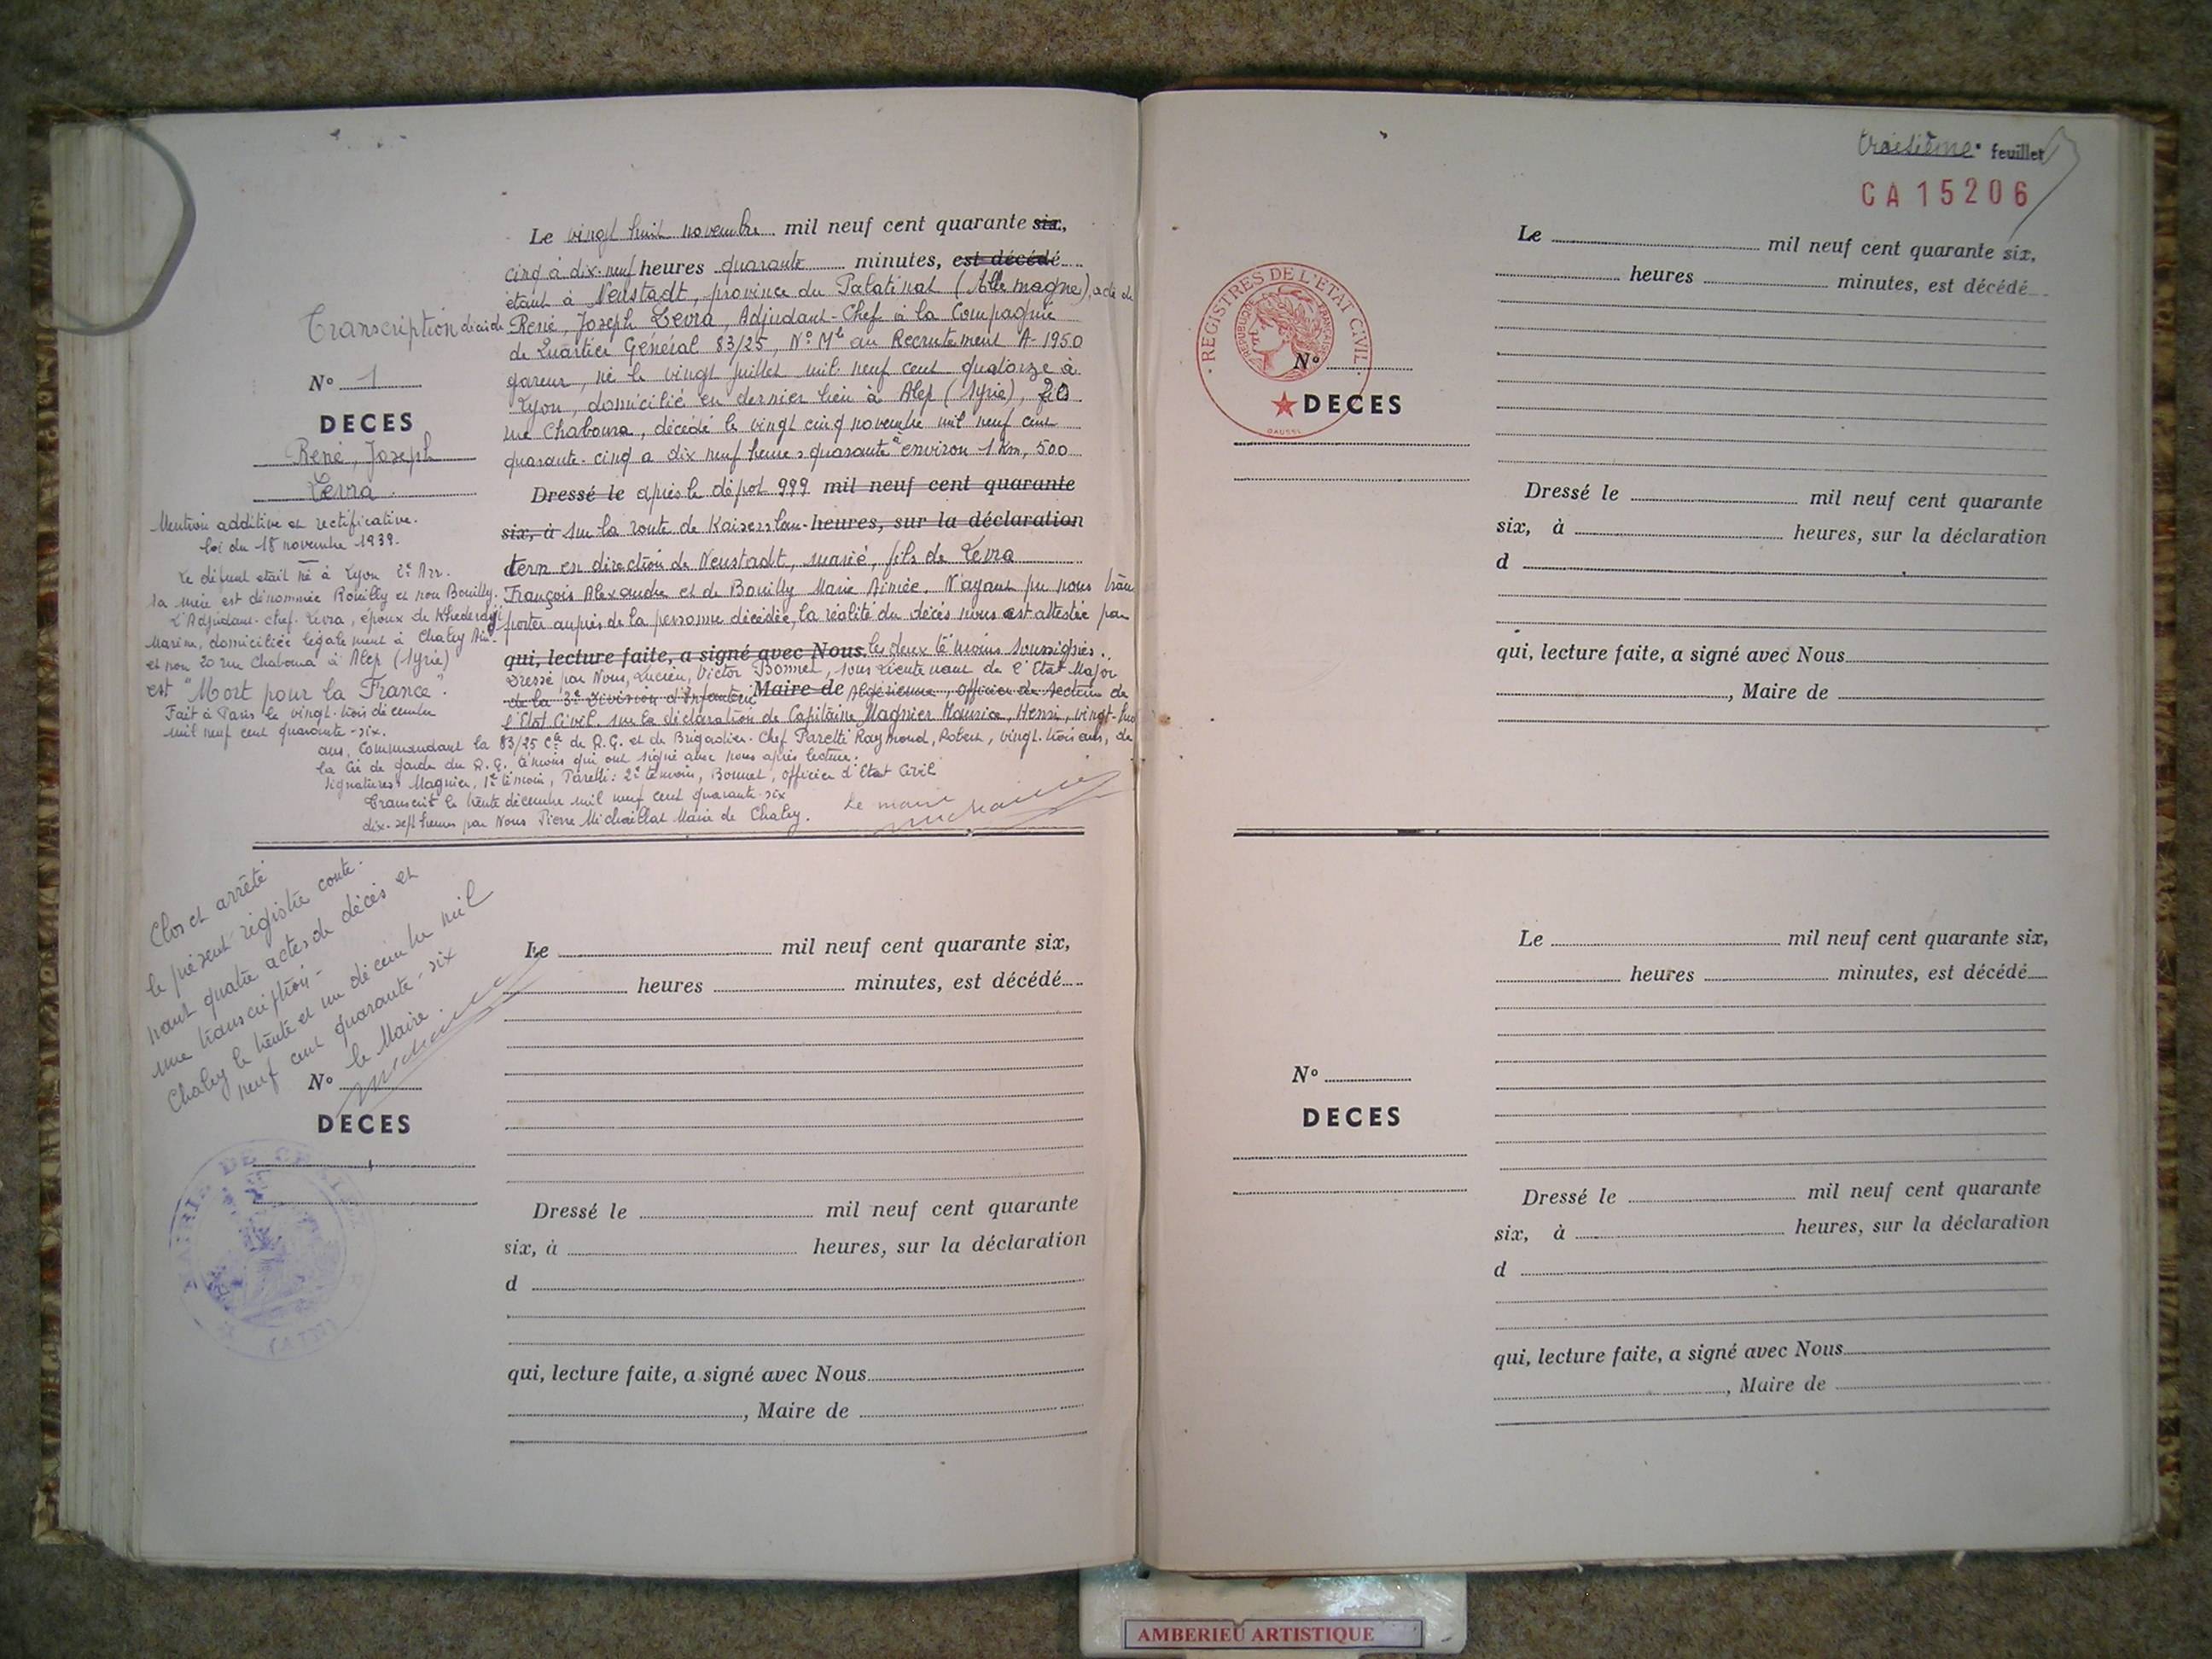 Le vingt huit novembre mil neuf cent quarante six,
cinq à dix-neuf heures quarante minutes, est décédé
étant à Neustadt, province du Palatinat (Allemagne), acte de
Transcription décès de René, Joseph Levra, Adjudant-Chef à la Compagnie
de Quartier Général 83/25, N° Mle au Recrutement A-1950
né le vingt juillet mil neuf cent quatorze à
Lyon, domicilié en dernier lieu à Alep (Syrie), 20
rue Chaboura, décédé le vingt cinq novembre mil neuf cent
quarante-cinq à dix neuf heures quarante à environ 1 Km, 500
Dressé le après le dépot 999 mil neuf cent quarante
six, à sur la route de Kaiserslau- heures, sur la déclaration
tern en direction de Neustadt, marié, fils de Levra
François Alexandre et de Bouilly Marie Aimée. N'ayant pu nous trans
porter auprès de la personne décédée, la réalité du décès nous est attestée par
qui, lecture faite, a signé avec Nous les deux témoins soussignés.
Dressé par Nous, Lucien, Victor Bonnet, sous Lieutenant de l'Etat Major
de la 3e Division d'Infanterie Maire de Algérienne, officier de
l'Etat Civil, sur la déclaration de Capitaine Magnier Maurice, Henri, vingt-huit
ans, Commandant la 83/25 Cie de Q.G. et de Brigadier-Chef Paretti Raymond, Robert, vingt-trois ans, de
la Cie de garde du Q.G. témoins qui ont signé avec nous après lecture.
Signatures: Magnier, 1er témoin, Paretti: 2e témoin, Bonnet, officier d'Etat Civil
Transcrit le trente décembre mil neuf cent quarante-six
dix-sept heures par Nous Pierre Michaillat Maire de Chaley.
Le maire
N° 1
DECES
René, Joseph
Levra
Mention additive et rectificative.
loi du 18 novembre 1939.
Le défunt était né à Lyon 2e Arr.
sa mère est dénommée Rouilly et non Bouilly.
L'Adjudant-chef Levra, époux de
domiciliée légalement à Chaley Ain
et non 20 rue Chaboura à Alep (Syrie)
est "Mort pour la France".
Fait à Paris le vingt-trois décembre
mil neuf cent quarante-six.
Clos et arrêté
le présent registre conte-
nant quatre actes de décès et
une transcription-
Chaley le trente et un décembre mil
neuf cent quarante-six
Le Maire.
N°
DECES
MAIRIE DE CHALEY
(AIN)
Le mil neuf cent quarante six,
heures minutes, est décédé
Dressé le mil neuf cent quarante
six, à heures, sur la déclaration
d
qui, lecture faite, a signé avec Nous
, Maire de
troisième feuillet
CA15206
REGISTRES DE L'ETAT CIVIL
REPUBLIQUE FRANÇAISE
N°
DECES
Le mil neuf cent quarante six,
heures minutes, est décédé
Dressé le mil neuf cent quarante
six, à heures, sur la déclaration
d
qui, lecture faite, a signé avec Nous
, Maire de
N°
DECES
Le mil neuf cent quarante six,
heures minutes, est décédé
Dressé le mil neuf cent quarante
six, à heures, sur la déclaration
d
qui, lecture faite, a signé avec Nous
, Maire de
AMBERIEU ARTISTIQUE